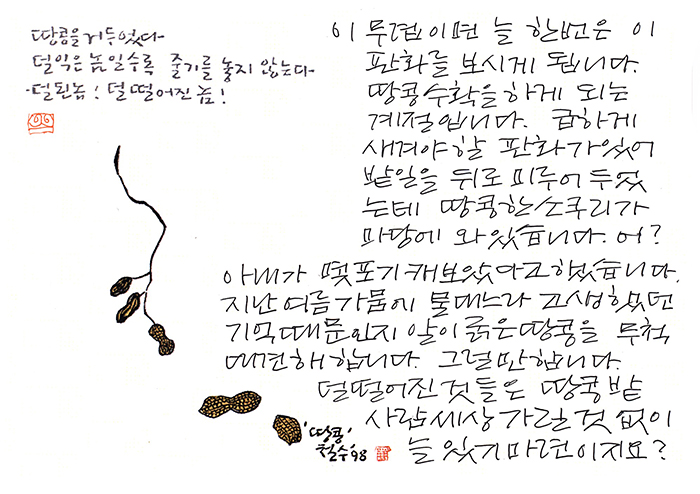 땅콩을 거두었다
덜익은 놈일수록 줄기를 놓지 않는다
덜된놈! 덜떨어진 놈!
이 무렵이면 늘 한번은 이
판화를 보시게 됩니다.
땅콩수확을 하게 되는
계절입니다. 급하게
새겨야 할 판화가 있어
밭일을 뒤로 미루어 두었
는데 땅콩 한 소쿠리가
마당에 와 있습니다. 어?
아내가 몇 포기 캐보았다고 했습니다.
지난 여름 가뭄에 물대느라 고생했던
기억때문인지 알이 굵은 땅콩을 무척
대견해 합니다. 그럴만합니다.
덜떨어진 것들은 땅콩밭
사람세상 가릴 것 없이
늘 있기 마련이지요?
'땅콩'
철수 '98